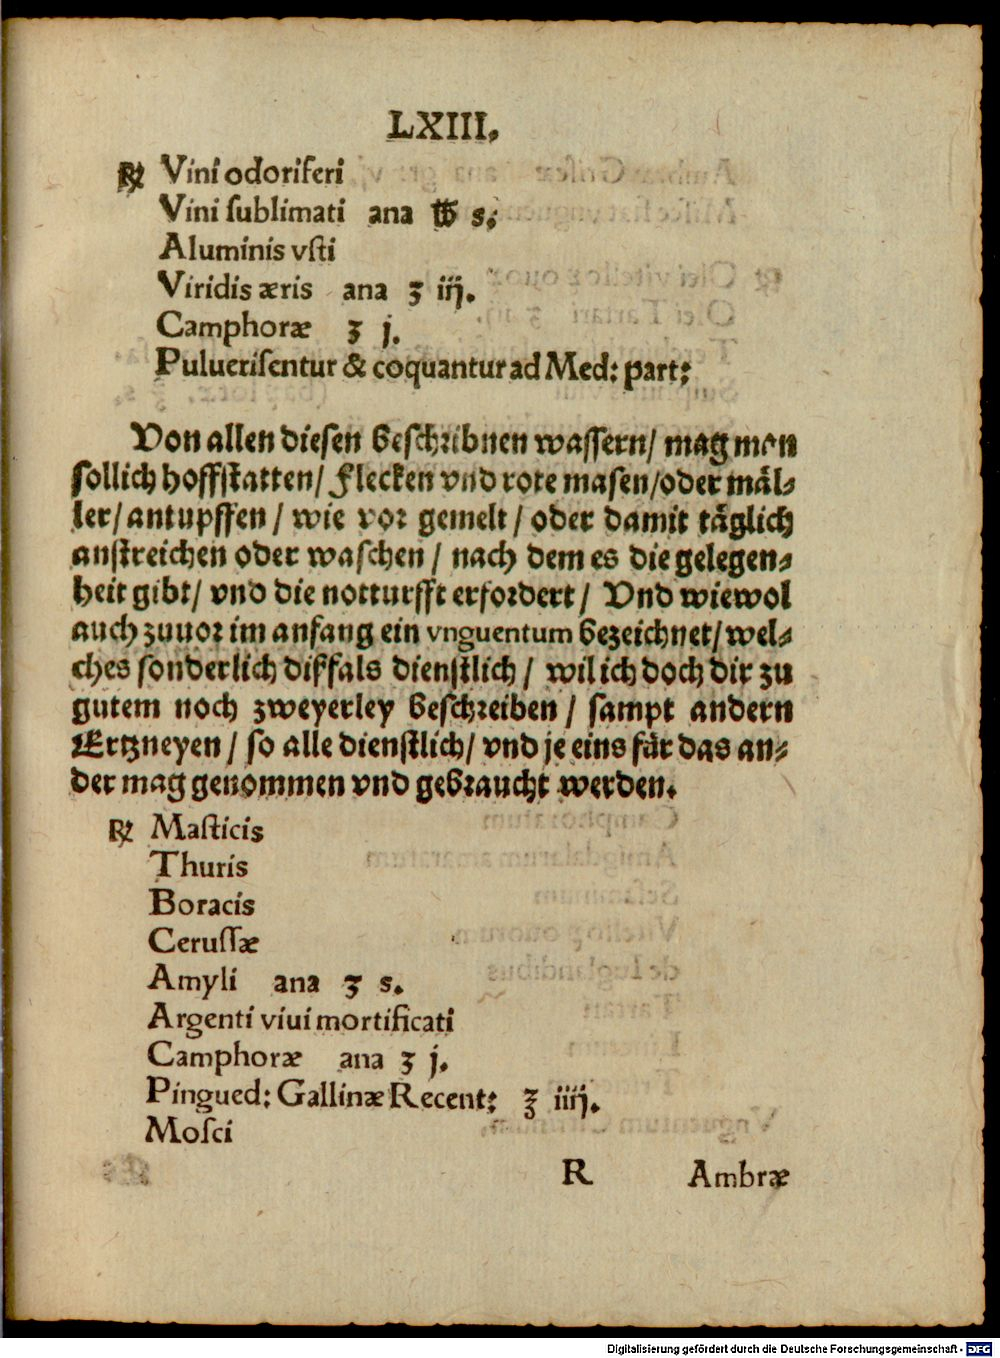 LXIII.
℞ Vini odoriferi
Vini ſublimati ana ℔ s.
Aluminis vſti
Viridis æris ana ʒ iij.
Camphoræ ʒ j.
Pulueriſentur & coquantur ad Med: part:
Von allen dieſen beſchribnen waſſern/ mag man
ſollich hoffſtatten/ flecken vnd rote maſen/oder mäl⸗
ler/ antupffen / wie vor gemelt / oder damit täglich
anſtreichen oder waſchen / nach dem es die gelegen⸗
heit gibt/ vnd die notturfft erfordert / Vnd wiewol
auch zuuor im anfang ein vnguentum bezeichnet/ wel⸗
ches ſonderlich diſſals dienſtlich / wil ich doch dir zu
gutem noch zweyerley beſchreiben / ſampt andern
Ertzneyen / ſo alle dienſtlich/ vnd je eins für das an⸗
der mag genommen vnd gebraucht werden.
℞ Maſticis
Thuris
Boracis
Ceruſſæ
Amyli ana ʒ s.
Argenti viui mortificati
Camphoræ ana ʒ j.
Pingued: Gallinæ Recent: ℥ iiij.
Moſci
R Ambræ
Digitalisierung gefördert durch die Deutsche Forschungsgemeinschaft - DFG